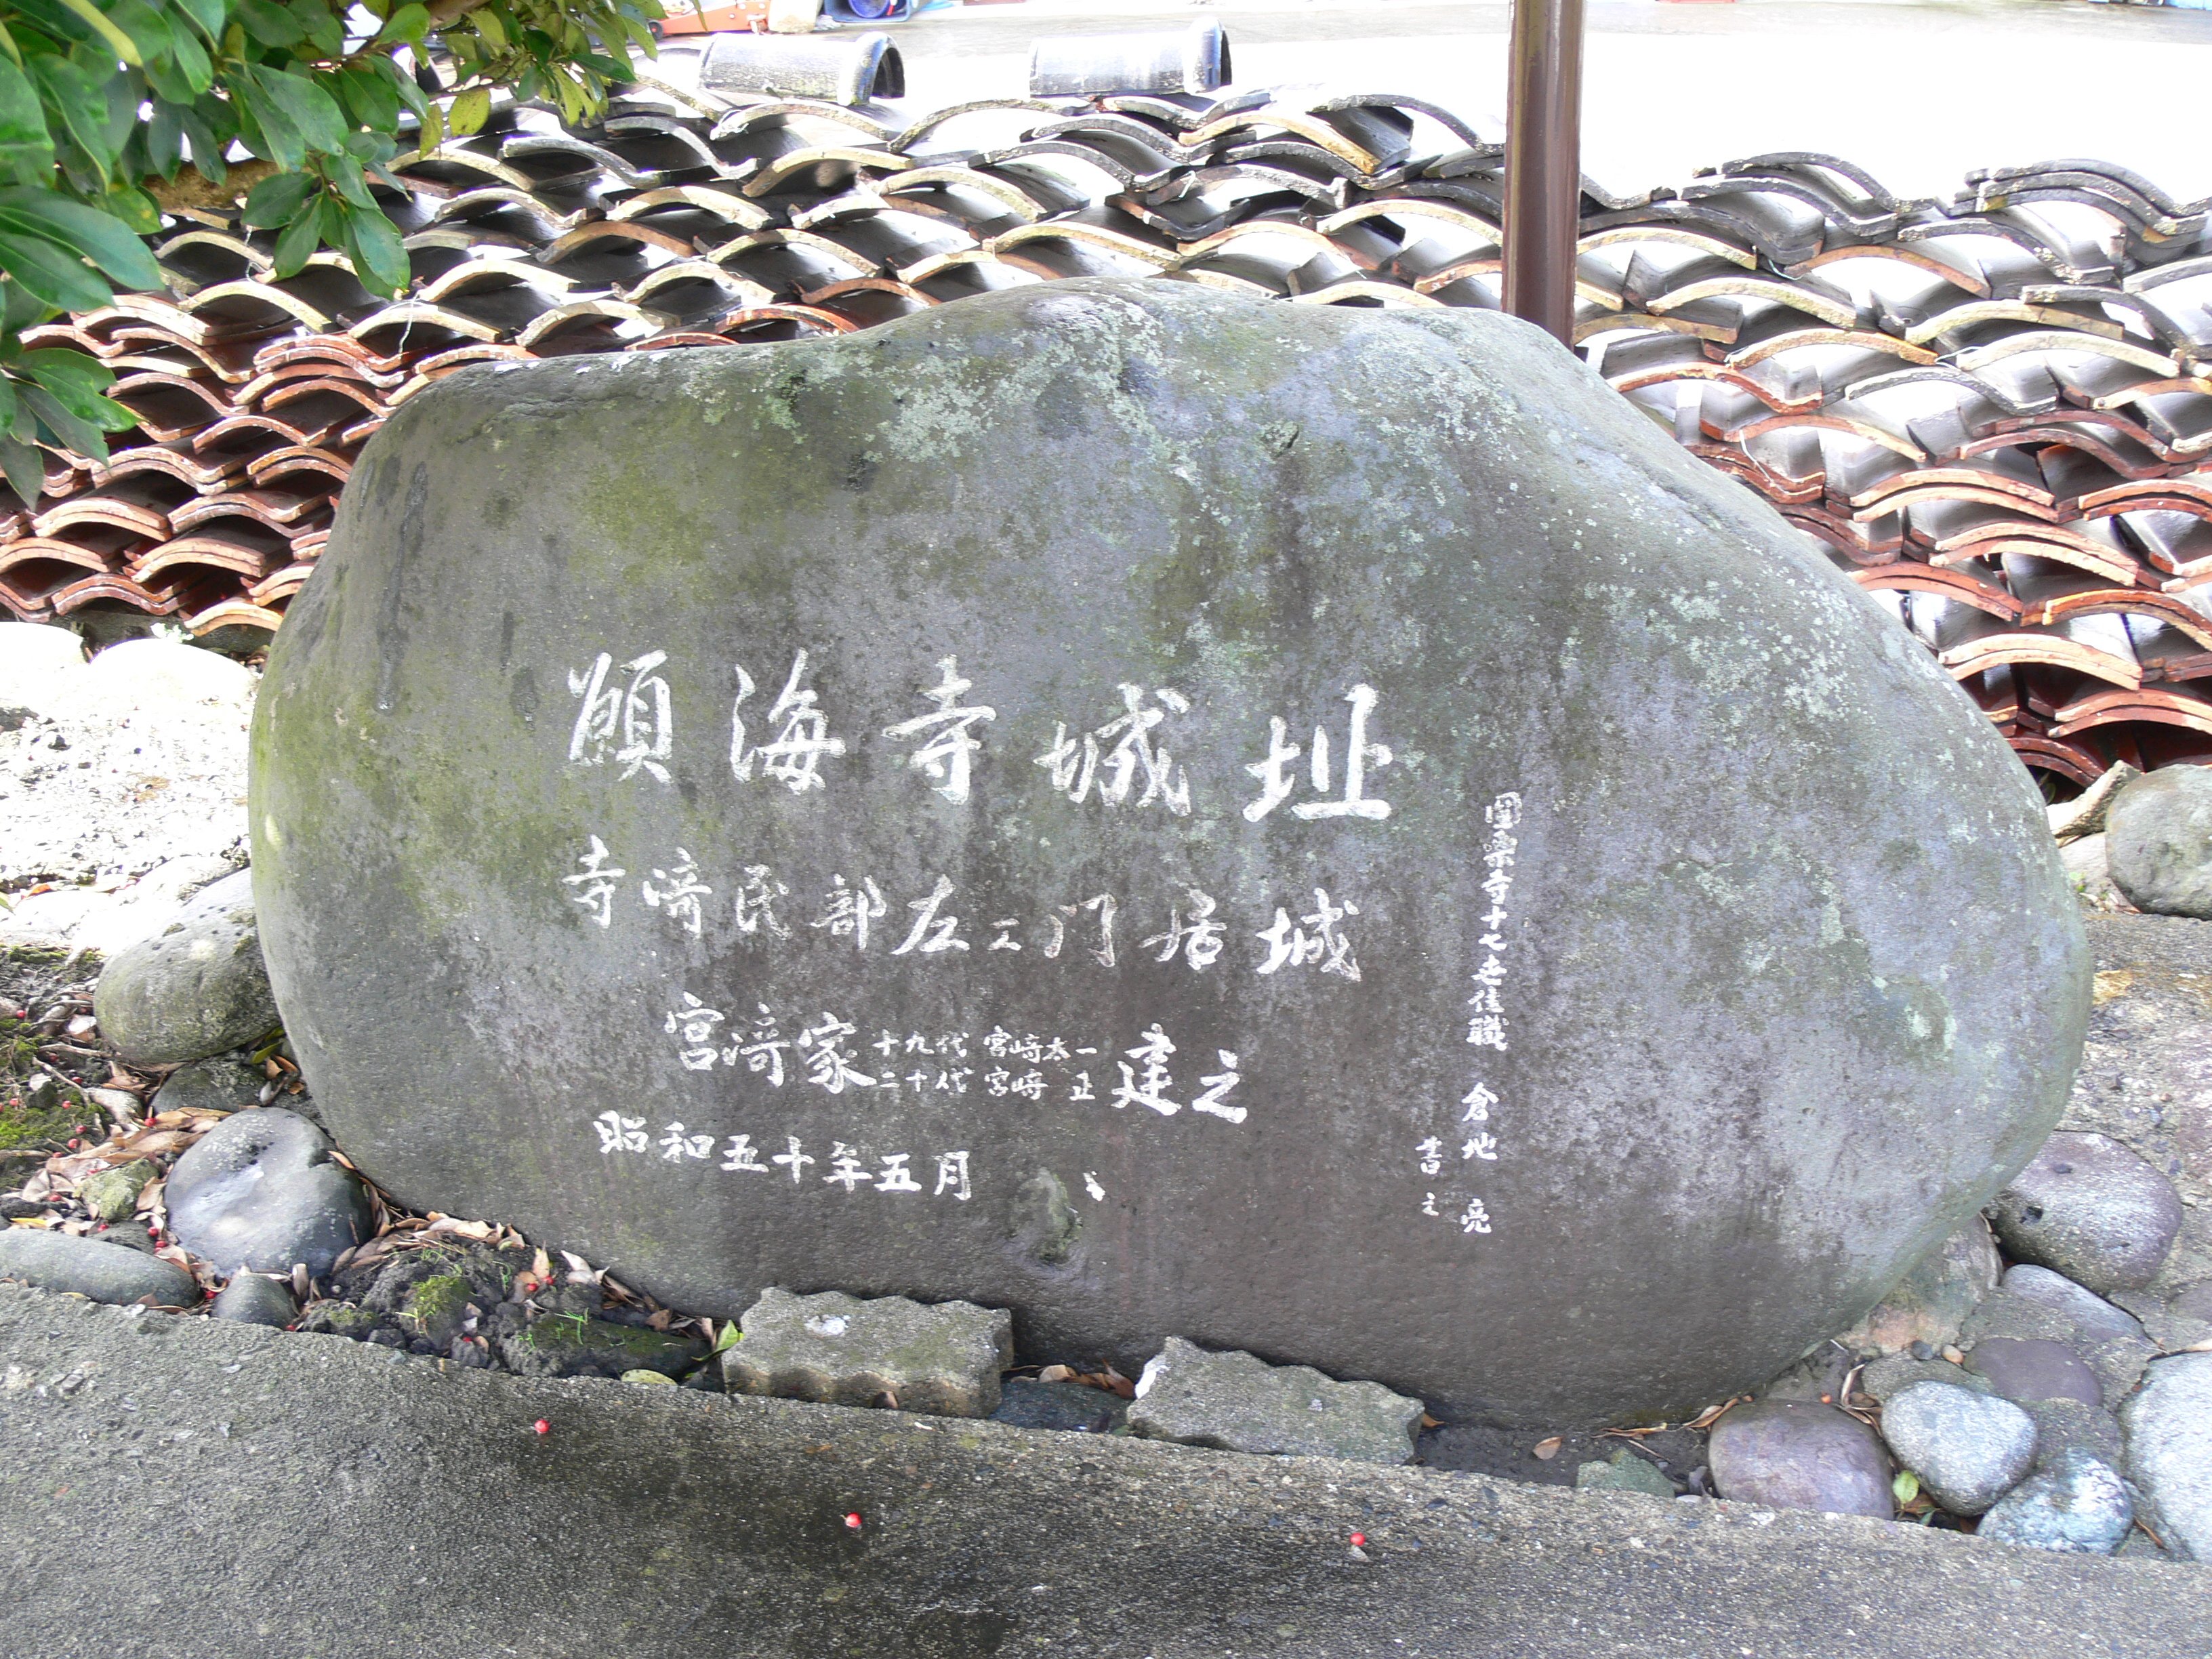 願海寺城址
寺崎民部左エ門居城
宮崎家十九代 宮崎太一 建之
二十代 宮崎 正
昭和五十年五月
寺十七世住職 倉地 亮
書之